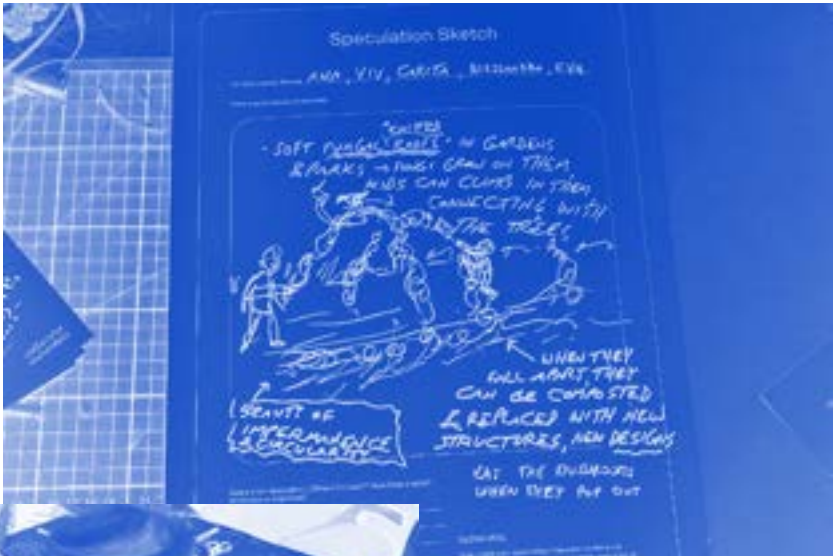 Speculation Sketch
ANA, VIV, CARITA, , EVA
"KNITTED
- SOFT FUNGAL ROOTS" IN GARDENS
& PARKS → FUNGI GROW ON THEM,
KIDS CAN CLIMB IN THEM
CONNECTING WITH
THE TREES
WHEN THEY
FALL APART, THEY
CAN BE COMPOSTED
& REPLACED WITH NEW
STRUCTURES, NEW DESIGNS
BEAUTY OF
IMPERMANENCE
& CIRCULARITY
EAT THE MUSHROOMS
WHEN THEY POP OUT